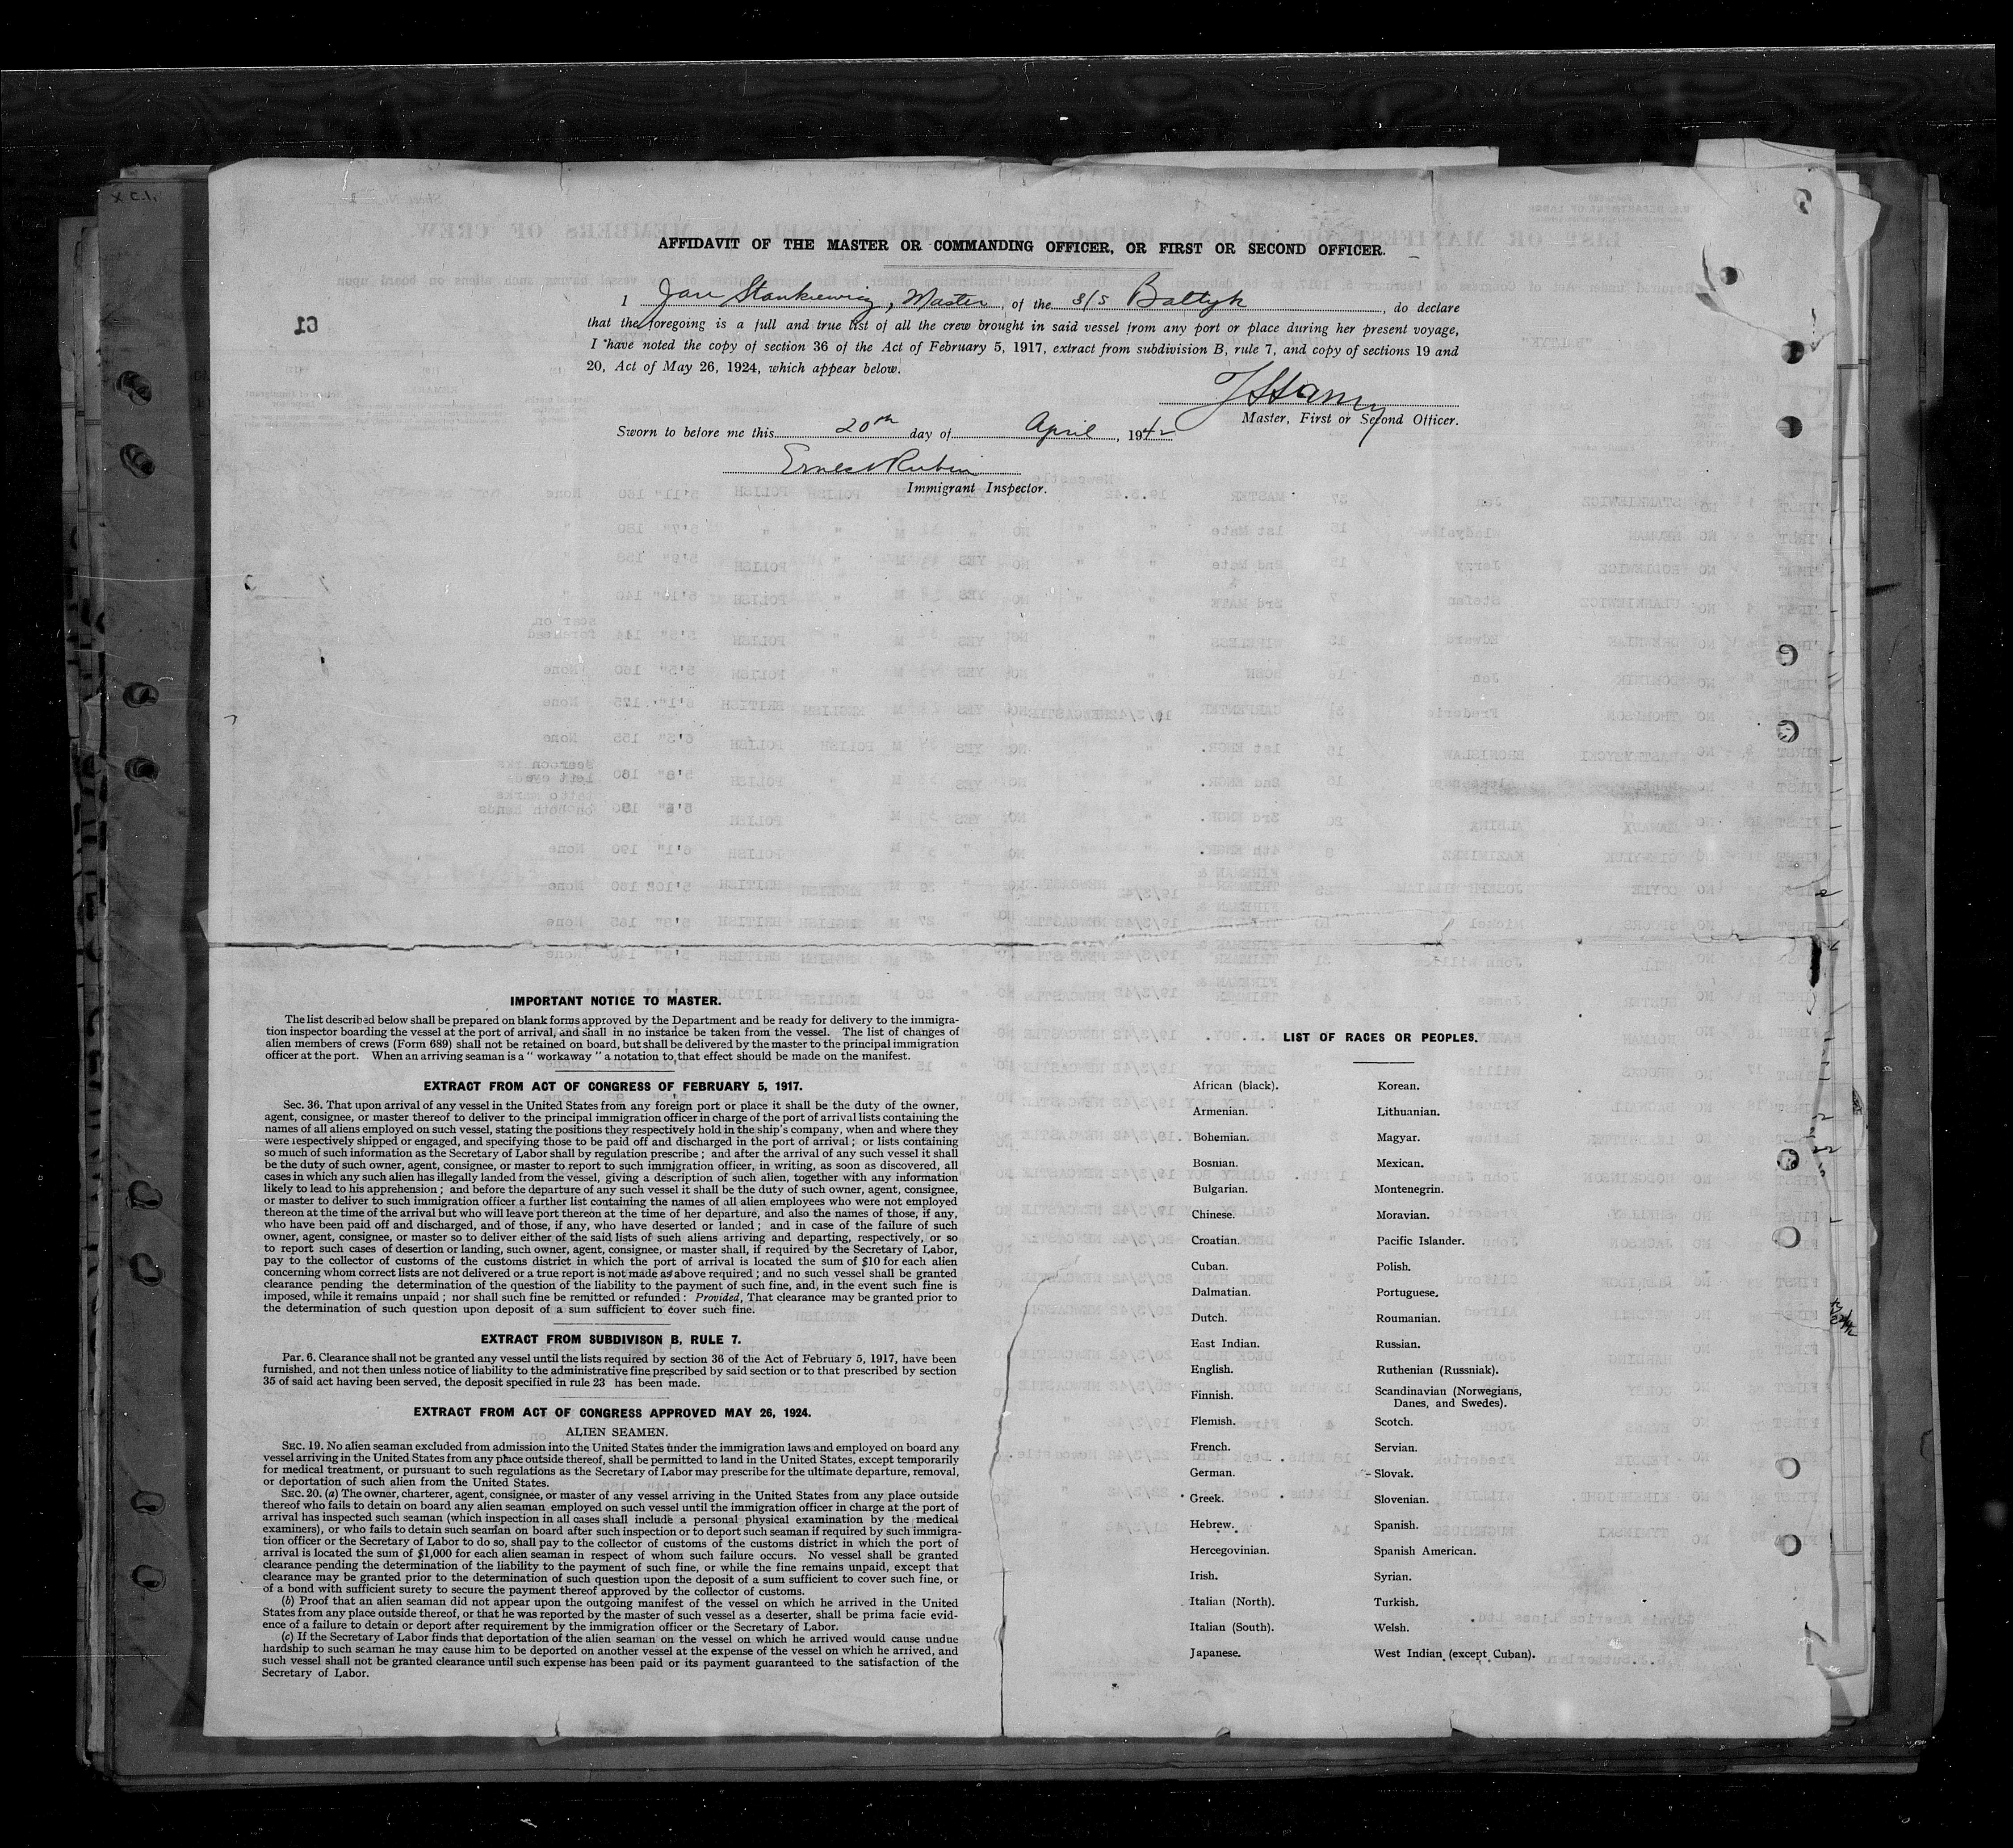 AFFIDAVIT OF THE MASTER OR COMMANDING OFFICER, OR FIRST OR SECOND OFFICER.
I Jan Stankiewicz, Master, of the S/S Baltyk, do declare
that the foregoing is a full and true list of all the crew brought in said vessel from any port or place during her present voyage,
I have noted the copy of section 36 of the Act of February 5, 1917, extract from subdivision B, rule 7, and copy of sections 19 and
20, Act of May 26, 1924, which appear below.
Master, First or Second Officer.
Sworn to before me this 20th day of April, 1942
Ernest Rubin
Immigrant Inspector.
IMPORTANT NOTICE TO MASTER.
The list described below shall be prepared on blank forms approved by the Department and be ready for delivery to the immigra-
tion inspector boarding the vessel at the port of arrival, and shall in no instance be taken from the vessel. The list of changes of
alien members of crews (Form 689) shall not be retained on board, but shall be delivered by the master to the principal immigration
officer at the port. When an arriving seaman is a " workaway " a notation to that effect should be made on the manifest.
EXTRACT FROM ACT OF CONGRESS OF FEBRUARY 5, 1917.
SEC. 36. That upon arrival of any vessel in the United States from any foreign port or place it shall be the duty of the owner,
agent, consignee, or master thereof to deliver to the principal immigration officer in charge of the port of arrival lists containing the
names of all aliens employed on such vessel, stating the positions they respectively hold in the ship's company, when and where they
were respectively shipped or engaged, and specifying those to be paid off and discharged in the port of arrival ; or lists containing
so much of such information as the Secretary of Labor shall by regulation prescribe ; and after the arrival of any such vessel it shall
be the duty of such owner, agent, consignee, or master to report to such immigration officer, in writing, as soon as discovered, all
cases in which any such alien has illegally landed from the vessel, giving a description of such alien, together with any information
likely to lead to his apprehension ; and before the departure of any such vessel it shall be the duty of such owner, agent, consignee,
or master to deliver to such immigration officer a further list containing the names of all alien employees who were not employed
thereon at the time of the arrival but who will leave port thereon at the time of her departure, and also the names of those, if any,
who have been paid off and discharged, and of those, if any, who have deserted or landed ; and in case of the failure of such
owner, agent, consignee, or master so to deliver either of the said lists of such aliens arriving and departing, respectively, or so
to report such cases of desertion or landing, such owner, agent, consignee, or master shall, if required by the Secretary of Labor,
pay to the collector of customs of the customs district in which the port of arrival is located the sum of $10 for each alien
concerning whom correct lists are not delivered or a true report is not made as above required ; and no such vessel shall be granted
clearance pending the determination of the question of the liability to the payment of such fine, and, in the event such fine is
imposed, while it remains unpaid ; nor shall such fine be remitted or refunded : Provided, That clearance may be granted prior to
the determination of such question upon deposit of a sum sufficient to cover such fine.
EXTRACT FROM SUBDIVISON B, RULE 7.
Par. 6. Clearance shall not be granted any vessel until the lists required by section 36 of the Act of February 5, 1917, have been
furnished, and not then unless notice of liability to the administrative fine prescribed by said section or to that prescribed by section
35 of said act having been served, the deposit specified in rule 23 has been made.
EXTRACT FROM ACT OF CONGRESS APPROVED MAY 26, 1924.
ALIEN SEAMEN.
SEC. 19. No alien seaman excluded from admission into the United States under the immigration laws and employed on board any
vessel arriving in the United States from any place outside thereof, shall be permitted to land in the United States, except temporarily
for medical treatment, or pursuant to such regulations as the Secretary of Labor may prescribe for the ultimate departure, removal,
or deportation of such alien from the United States.
SEC. 20. (a) The owner, charterer, agent, consignee, or master of any vessel arriving in the United States from any place outside
thereof who fails to detain on board any alien seaman employed on such vessel until the immigration officer in charge at the port of
arrival has inspected such seaman (which inspection in all cases shall include a personal physical examination by the medical
examiners), or who fails to detain such seaman on board after such inspection or to deport such seaman if required by such immigra-
tion officer or the Secretary of Labor to do so, shall pay to the collector of customs of the customs district in which the port of
arrival is located the sum of $1,000 for each alien seaman in respect of whom such failure occurs. No vessel shall be granted
clearance pending the determination of the liability to the payment of such fine, or while the fine remains unpaid, except that
clearance may be granted prior to the determination of such question upon the deposit of a sum sufficient to cover such fine, or
of a bond with sufficient surety to secure the payment thereof approved by the collector of customs.
(b) Proof that an alien seaman did not appear upon the outgoing manifest of the vessel on which he arrived in the United
States from any place outside thereof, or that he was reported by the master of such vessel as a deserter, shall be prima facie evid-
ence of a failure to detain or deport after requirement by the immigration officer or the Secretary of Labor.
(c) If the Secretary of Labor finds that deportation of the alien seaman on the vessel on which he arrived would cause undue
hardship to such seaman he may cause him to be deported on another vessel at the expense of the vessel on which he arrived, and
such vessel shall not be granted clearance until such expense has been paid or its payment guaranteed to the satisfaction of the
Secretary of Labor.
LIST OF RACES OR PEOPLES.
African (black).
Armenian.
Bohemian.
Bosnian.
Bulgarian.
Chinese.
Croatian.
Cuban.
Dalmatian.
Dutch.
East Indian.
English.
Finnish.
Flemish.
French.
German.
Greek.
Hebrew.
Hercegovinian.
Irish.
Italian (North).
Italian (South).
Japanese.
Korean.
Lithuanian.
Magyar.
Mexican.
Montenegrin.
Moravian.
Pacific Islander.
Polish.
Portuguese.
Roumanian.
Russian.
Ruthenian (Russniak).
Scandinavian (Norwegians,
Danes, and Swedes).
Scotch.
Servian.
Slovak.
Slovenian.
Spanish.
Spanish American.
Syrian.
Turkish.
Welsh.
West Indian (except Cuban).